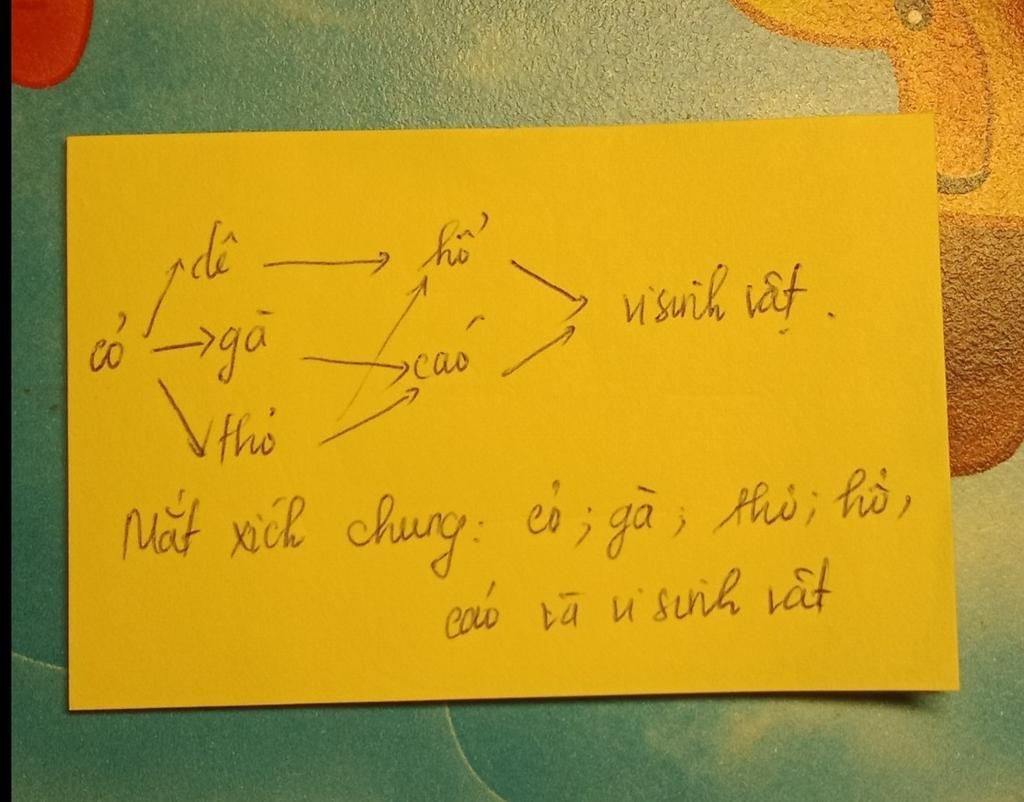 dê hổ
cỏ gà cáo vi sinh vật.
thỏ
Mắt xích chung: cỏ; gà; thỏ; hổ,
cáo và vi sinh vật